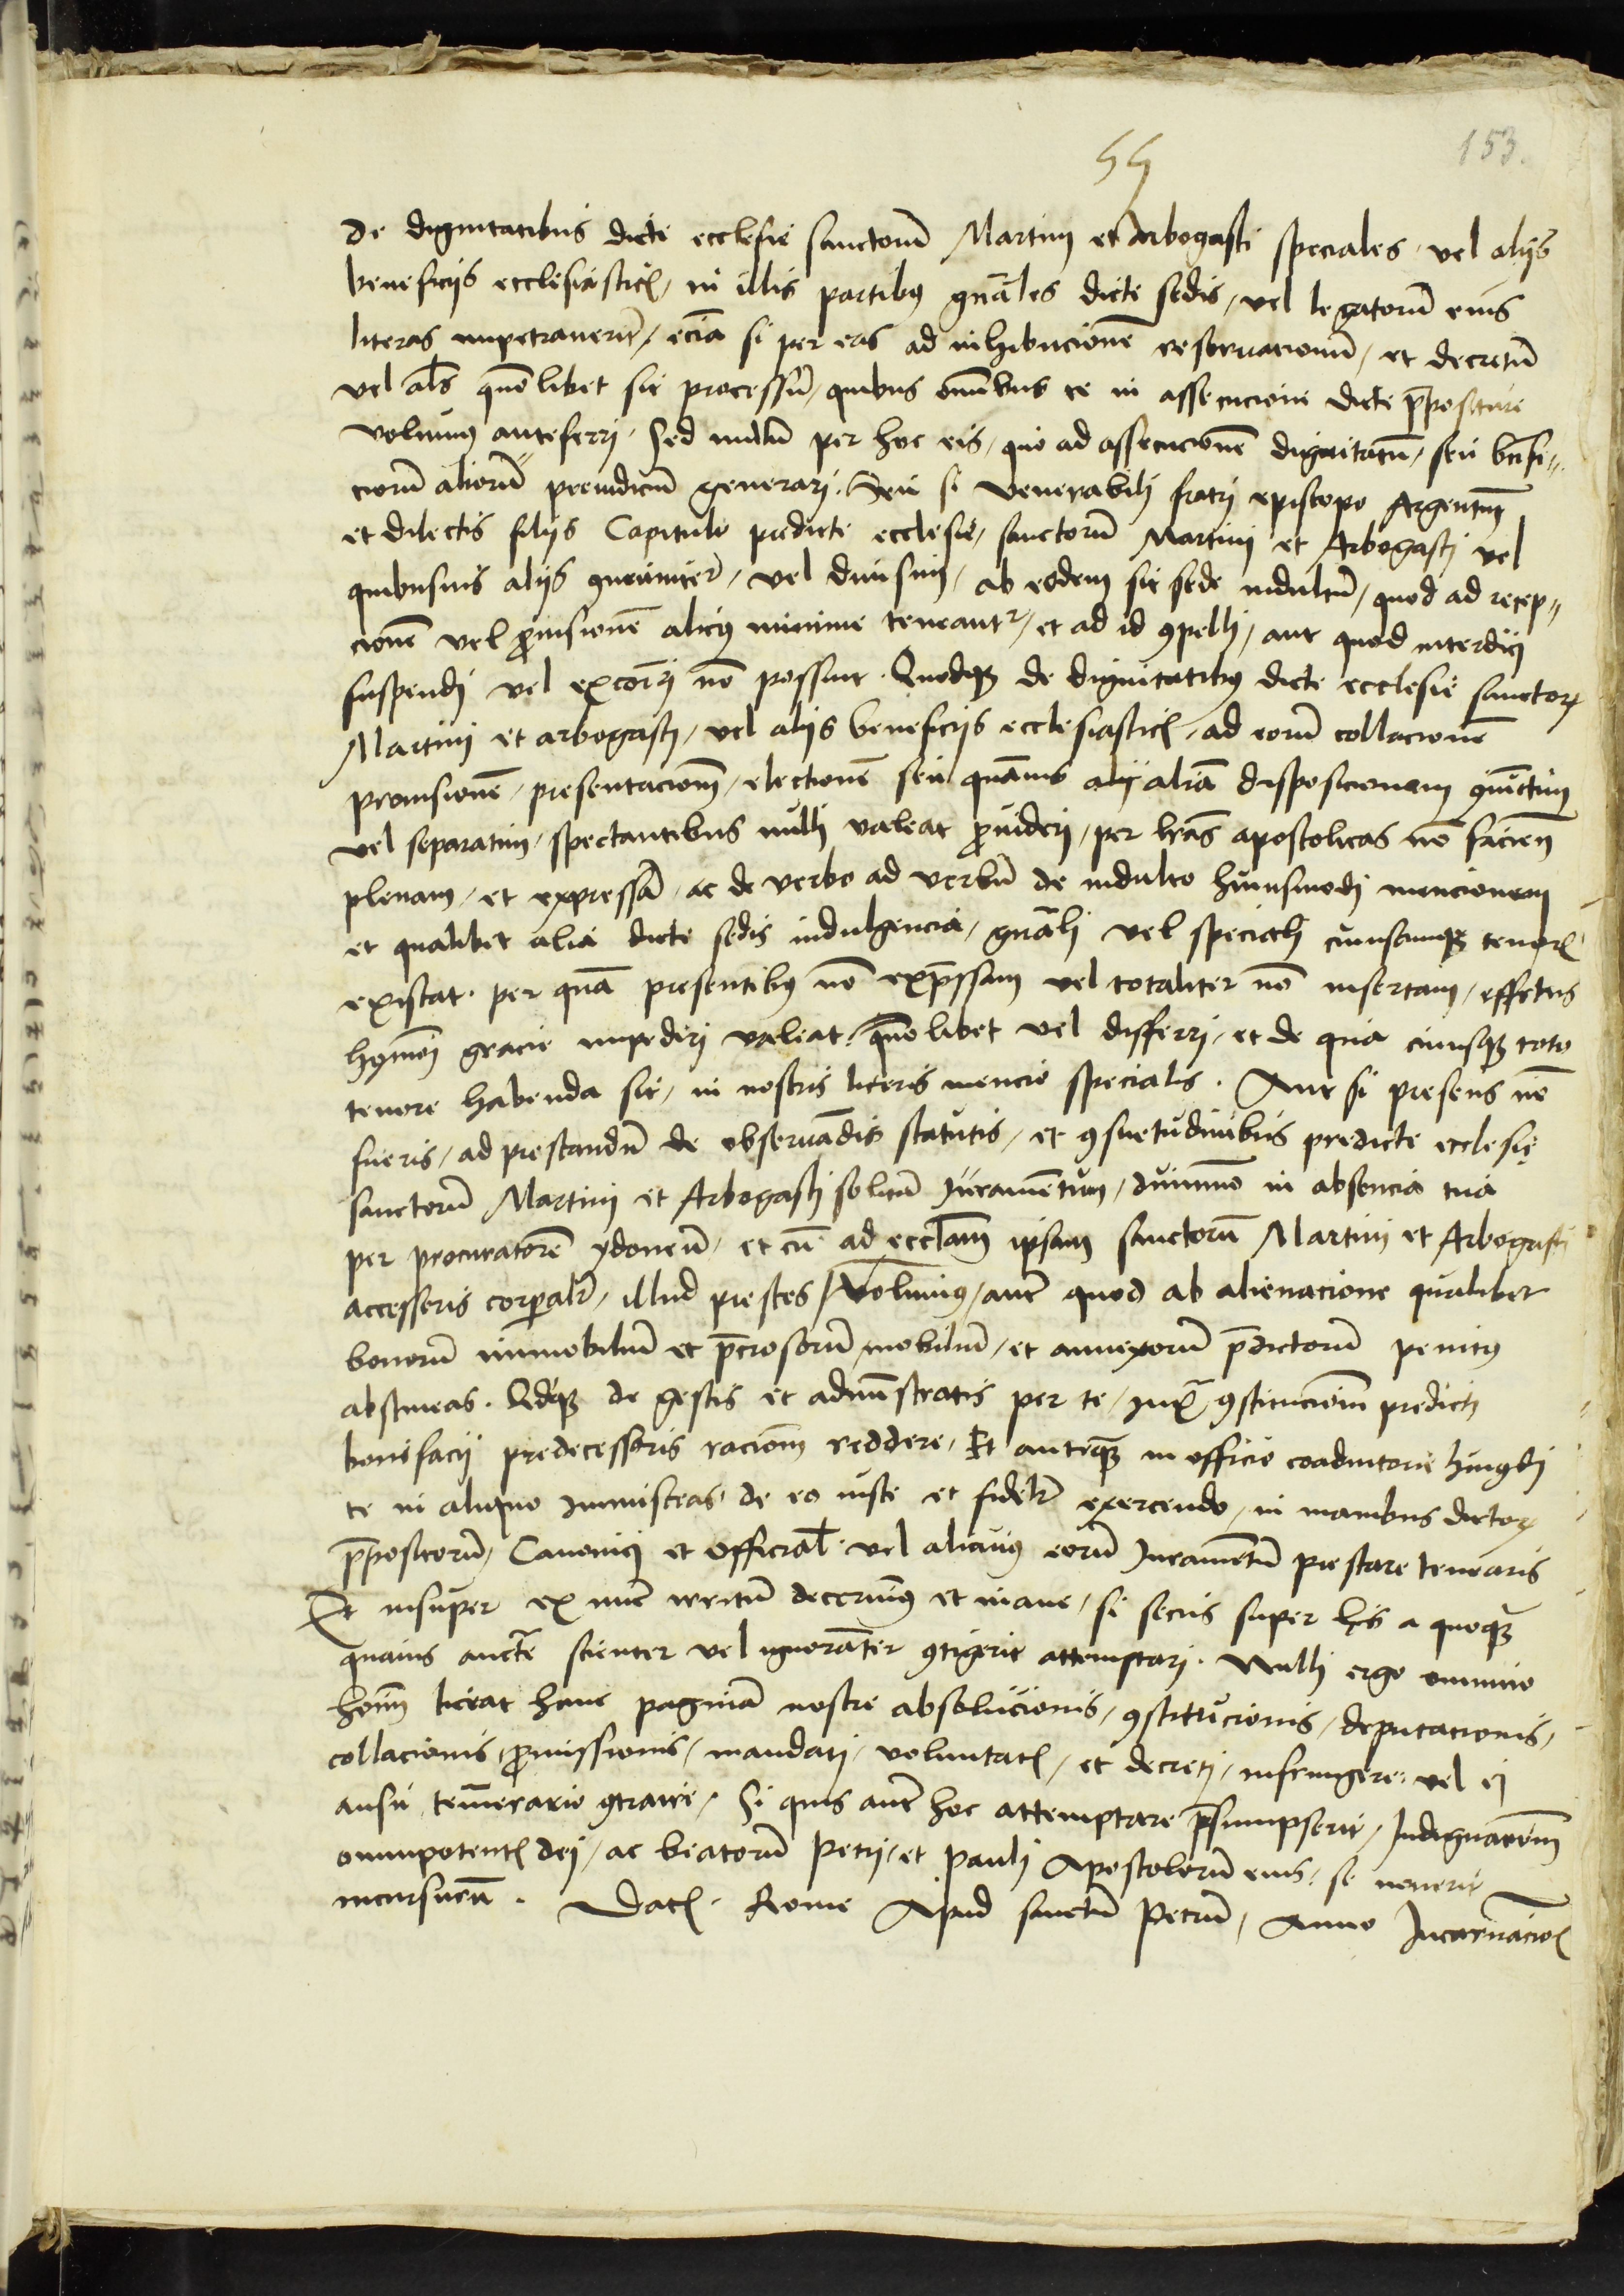 55
153.
de dignitatibus dicte ecclesie sanctorū Martini et Arbogasti speciales / vel alijs
beneficijs ecclesiasticꝭ / in illis partibꝯ gn̄ales dicte sedis / vel legatorū eius
literas impetraverīt / eciā si per eas ad inhibicionē reservacionū / et decretū
vel als quōlibet sit processū / quibus om̄ibus te in assecucione dicte p̄positure
volumꝯ anteferri / Sed nullū per hoc eis / quo ad assecucionē dignitatū / seu bn̄fi-
ciorū aliorū preiudiciū generari. Seu si Venerabili fratri episcopo Argentin̄
et dilectis filijs Capitulo predicte ecclesie / sanctorū Martini et Arbogasti vel
quibusvis alijs ꝯmuniter / vel divisim / ab eodem sit sede indultū / quod ad recep-
cionē vel ꝓvisionē alicꝯ minime teneantʳ / et ad id ꝯpelli / aut quod interdici
suspendi vel excōīri nō possint. Quodqꝫ de dignitatibꝯ dicte ecclesie sanctoꝝ
Martini et arbogasti / vel alijs beneficijs ecclesiasticꝭ / ad eorū collacionē
provisionē / presentacionē / electionē seu quāvis aliā disposicionem ꝯiūctim
vel separatim / spectantibus nulli valeat ꝓvideri / per lr̄as apostolicas nō facien̄
plenam / et expressā / ac de verbo ad verbū de indulto huiusmodi mencionem
et qualibet alia dicte sedis indulgencia / gn̄ali vel speciali cuiuscumqꝫ tenorꝭ
existat. per quā presentibꝯ nō exp̄ssam vel totaliter nō insertam / effectus
hꝯmōi gracie impediri valeat quōlibet vel differri / et de qua cuiusqꝫ toto
tenore habenda sit / in nostris literis mencio specialis. Aut si presens nō
fueris / ad prestandū de observādis statutis / et ꝯsuetudinibus predicte ecclesię
sanctorū Martini et Arbogasti solitū Juramentum / dummō in absencia tua
per procuratorē ydoneū / et cū ad eccl̄am ipsam sanctorū Martini et Arbogasti
accesseris corporalr̄ / illud prestes / Volumus / aut̄ quod ab alienacione qualibet
bonorū immobiliū et p̄ciosorū mobiliū / et annexorū p̄dictorū penitꝯ
abstineas. Qd̄qꝫ de gestis et administratis per te / iux̄ ꝯstitucionē predicti
bonifacij predecessoris racionē reddere / Et anteqꝫ in officio coadiutorie huiꝯdi
te in aliquo immisceas / de eo iuste et fidelr̄ exercendo / in manibus dictoꝝ
p̄positorū / Canonici et Official̄ vel alicuiꝯ eorū Juramentū prestare tenearis
Et insuper ex nunc irritū decernimꝯ et inane / si secus super his a quoqꝫ
quavis auct̄e scienter vel ignorāter ꝯtigerit attemptari. Nulli ergo omnino
hoīm liceat hanc paginā nostre absolucionis / ꝯstitucionis / deputacionis /
collacionis / ꝓmissionis / mandati / voluntatꝭ / et decreti / infringere / vel ei
ausu temerario ꝯtraire / Si quis aut̄ hoc attemptare p̄sumpserit / Indignacionē
omnipotentꝭ dei / ac beatorū Petri / et Pauli Apostolorū eius / se noverit
incursurū. Datꝭ. Rome Apud sanctū Petrū / Anno Incarnacioꝭ